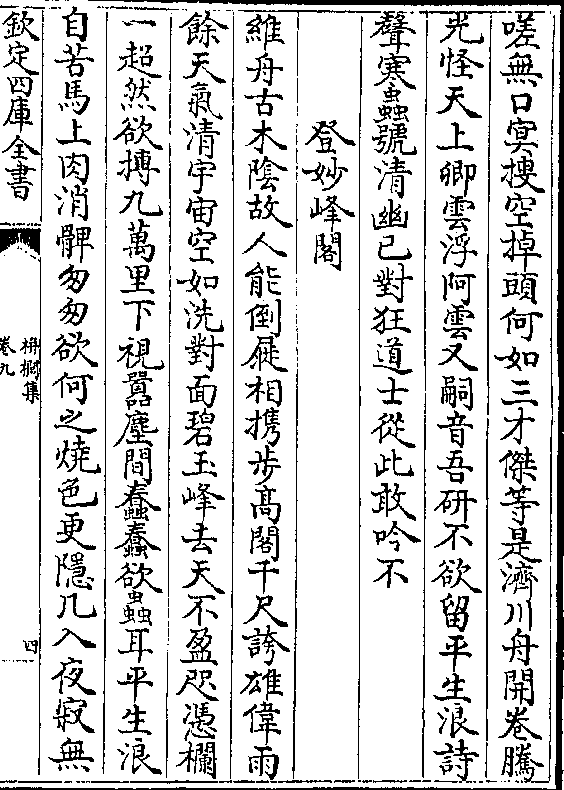 嗟無口㝠捜空掉頭何如三才傑等是濟川舟開卷騰
光怪天上卿雲浮阿雲又嗣音吾研不欲留平生浪詩
聲寒蟲號清幽已對狂道士從此敢吟不
登妙峰閣
維舟古木陰故人能倒屣相携歩髙閣千尺誇雄偉雨
餘天氣清宇宙空如洗對面碧玉峰去天不盈咫憑欄
一超然欲摶九萬里下視囂塵間蠢蠢欲蟲耳平生浪
自苦馬上肉消髀匆匆欲何之燒色更隱几入夜寂無
欽定四庫全書
栟櫚集
卷九
四